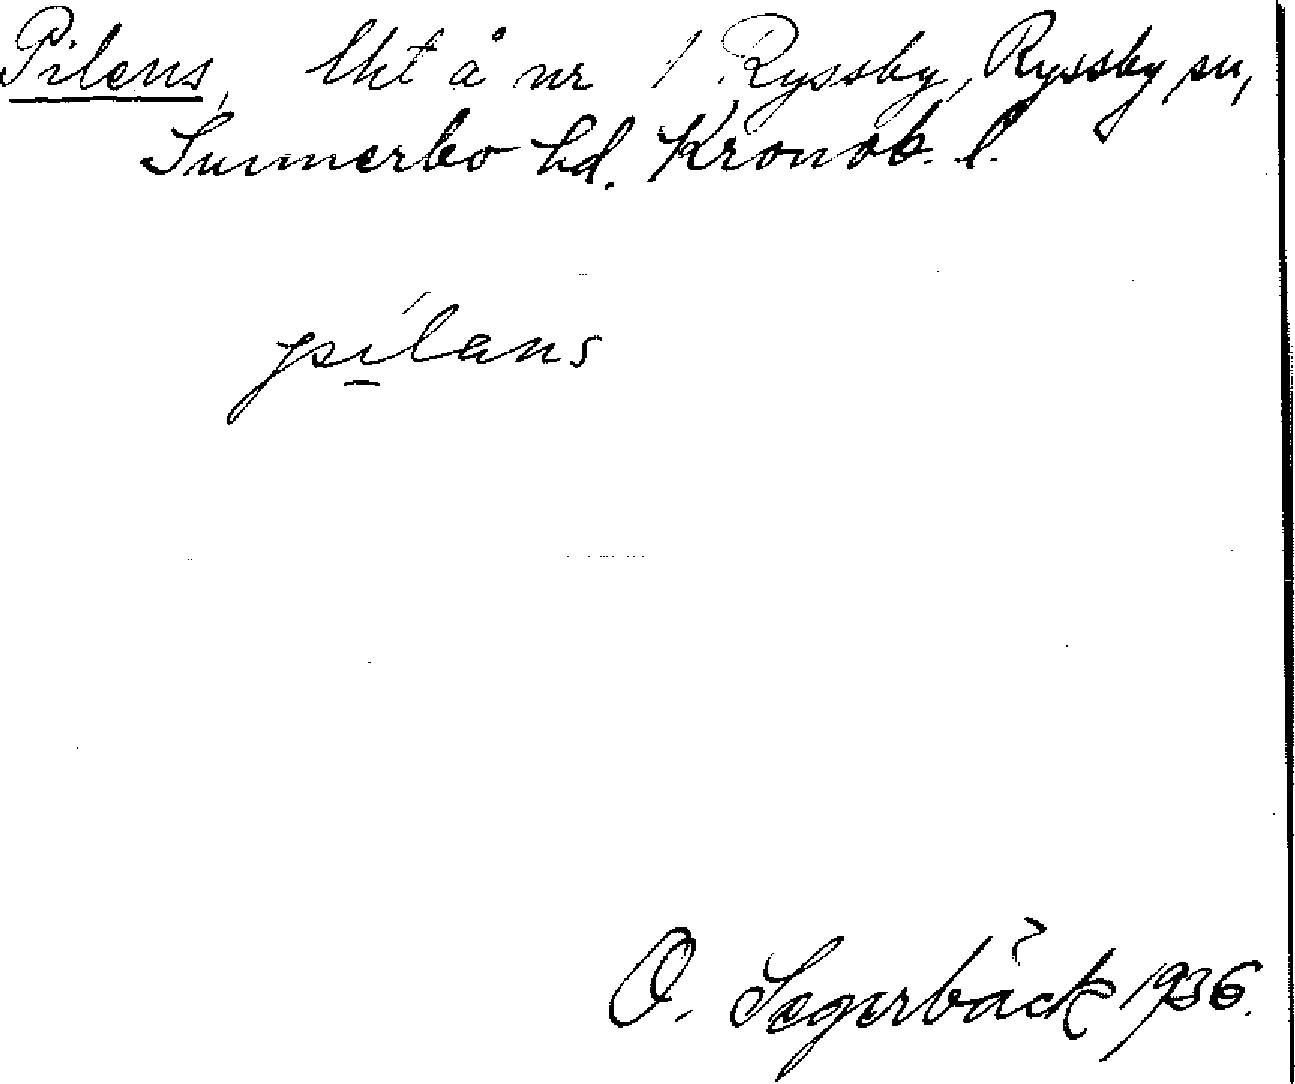 Pilens, lht å nr 1 Ryssby, Ryssby sn,
Sunnerbo hd. Kronob. l.
pílans
O. Segerbäck 1936.